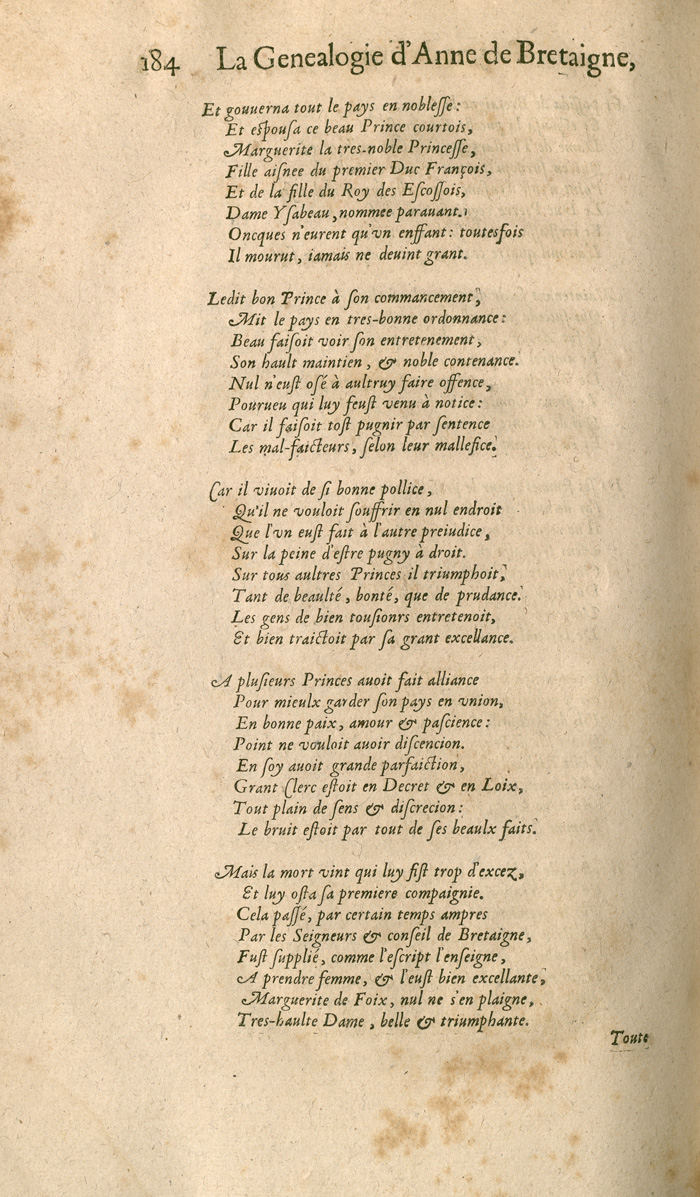 184 La Genealogie d'Anne de Bretaigne,
Et gouuerna tout le pays en noblesse:
Et espousa ce beau Prince courtois,
Marguerite la tres-noble Princesse,
Fille aisnee du premier Duc François,
Et de la fille du Roy des Escossois,
Dame Ysabeau, nommee parauant.
Oncques n'eurent qu'vn enffant: toutesfois
Il mourut, iamais ne deuint grant.
Ledit bon Prince à son commancement,
Mit le pays en tres-bonne ordonnance:
Beau faisoit voir son entretenement,
Son hault maintien, & noble contenance.
Nul n'eust osé à aultruy faire offence,
Pourueu qui luy feust venu à notice:
Car il faisoit tost pugnir par sentence
Les mal-faicteurs, selon leur mallefice.
Car il viuoit de si bonne pollice,
Qu'il ne vouloit souffrir en nul endroit
Que l'vn eust fait à l'autre preiudice,
Sur la peine d'estre pugny à droit.
Sur tous aultres Princes il triumphoit,
Tant de beaulté, bonté, que de prudance.
Les gens de bien tousionrs entretenoit,
Et bien traictoit par sa grant excellance.
A plusieurs Princes auoit fait alliance
Pour mieulx garder son pays en vnion,
En bonne paix, amour & pascience:
Point ne vouloit auoir discencion.
En soy auoit grande parfaiction,
Grant Clerc estoit en Decret & en Loix,
Tout plain de sens & discrecion:
Le bruit estoit par tout de ses beaulx faits.
Mais la mort vint qui luy fist trop d'excez,
Et luy osta sa premiere compaignie.
Cela passé, par certain temps ampres
Par les Seigneurs & conseil de Bretaigne,
Fust supplié, comme l'escript l'enseigne,
A prendre femme, & l'eust bien excellante,
Marguerite de Foix, nul ne s'en plaigne,
Tres-haulte Dame, belle & triumphante.
Toute